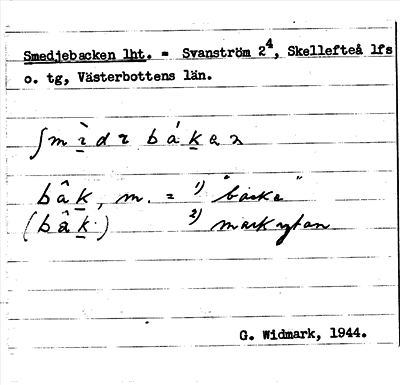 Smedjebacken lht. = Svanström 2⁴, Skellefteå lfs
o. tg, Västerbottens län.
bâk, m. = 1) "backe"
(bâk·) 2) markytan
G. Widmark, 1944.